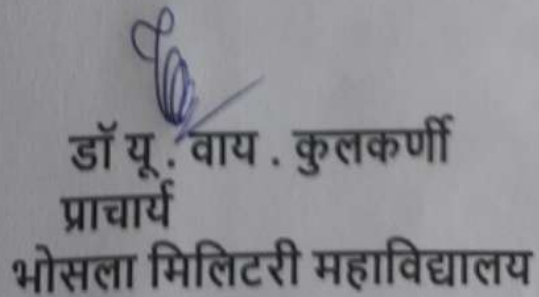 डॉ यू . वाय . कुलकर्णी
प्राचार्य
भोसला मिलिटरी महाविद्यालय